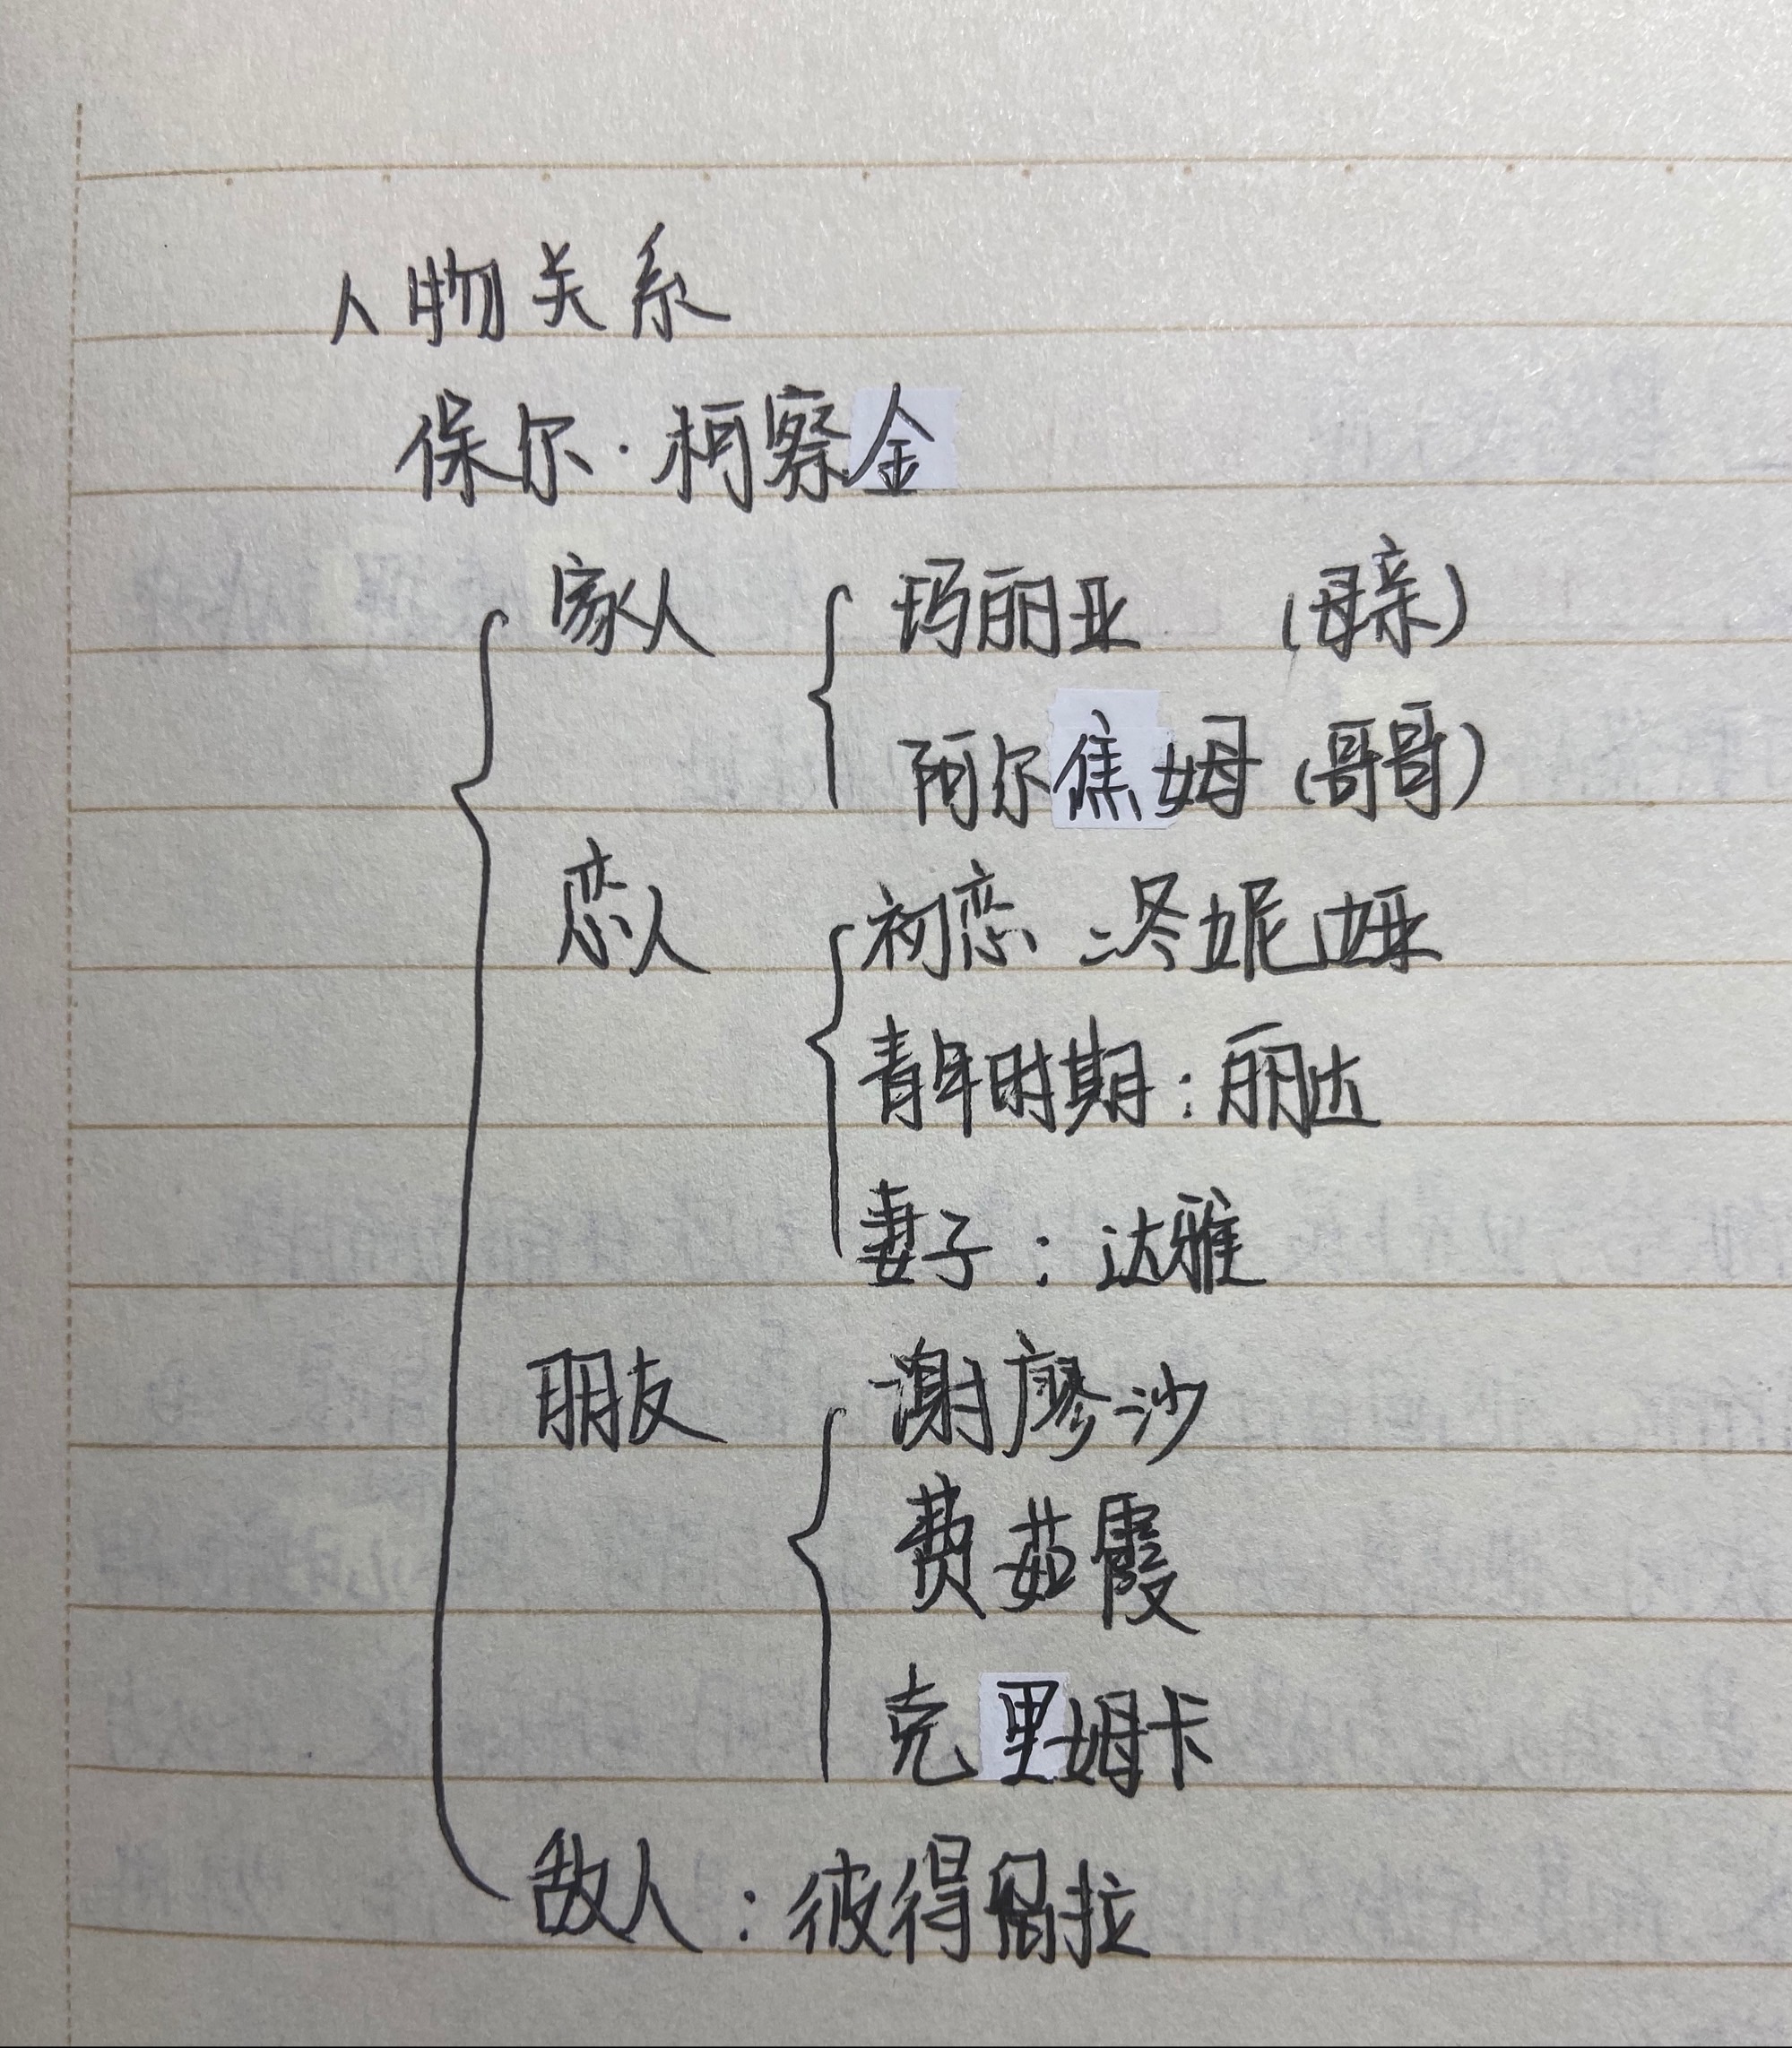 人物关系
保尔·柯察金
家人 玛丽亚 (母亲)
阿尔焦姆 (哥哥)
恋人 初恋:冬妮娅
青年时期:丽达
妻子:达雅
朋友 谢廖沙
费茹霞
克里姆卡
敌人:彼得留拉